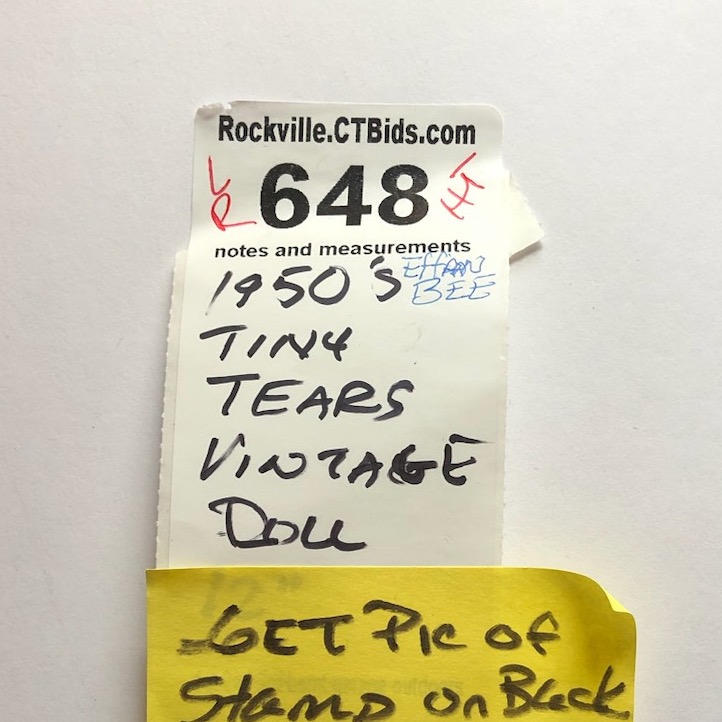 Rockville.CTBids.com
LR 648 HT
notes and measurements
1950's EFFAN BEE
TINY
TEARS
VINTAGE
DOLL
12"
GET PIC OF
Stamp on Back